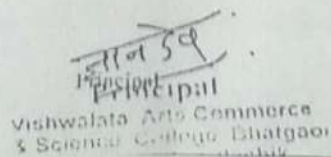 ज्ञानदेव
Principal
Vishwalata Arts Commerce
& Science College Bhatgaon